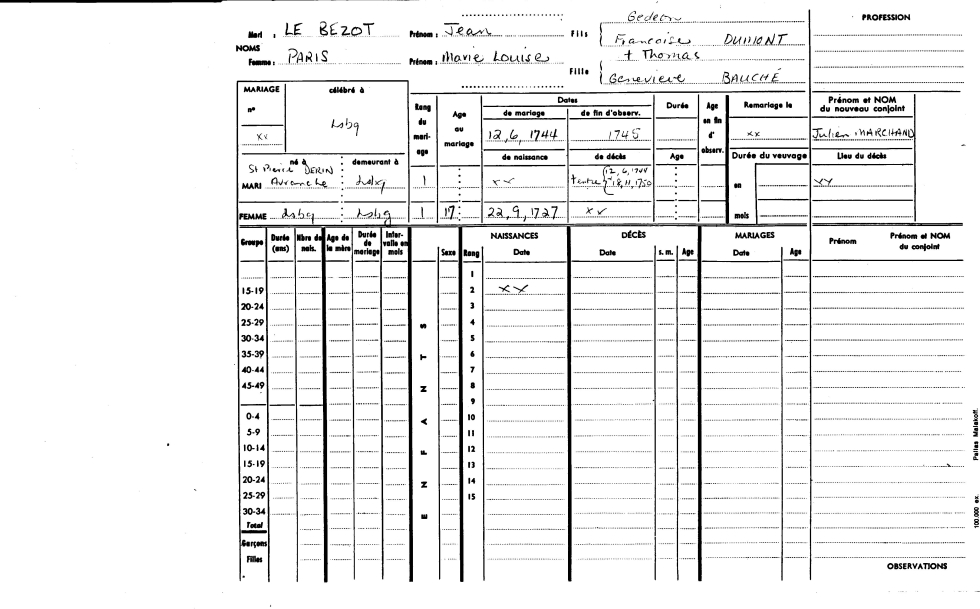 Gedeon
PROFESSION
Mari : LE BEZOT Prénom : Jean Fils
Francoise DUMONT
NOMS
+ Thomas
Femme : PARIS Prénom : Marie Louise Fille
Genevieve BAUCHÉ
MARIAGE célébré à Rang du mariage Age au mariage Dates Durée Age en fin d'observ. Remariage le Prénom et NOM du nouveau conjoint
n° de mariage de fin d'observ.
xx Lsbg 12,6,1744 1745 xx Julien MARCHAND
né à demeurant à de naissance de décès Age Durée du veuvage Lieu du décès
St Pierre DERIN
MARI Avranche Lsbg 1 xx + entre { 12,6,1744 18,11,1750 en xx
FEMME Lsbg Lsbg 1 17 22,9,1727 xx mois
Groupe Durée (ans) Nbre de nais. Age de la mère Durée de mariage Intervalle en mois Sexe Rang NAISSANCES DÉCÈS MARIAGES Prénom Prénom et NOM du conjoint
Date Date s. m. Age Date Age
1
15-19 2 xx
20-24 3
25-29 4
30-34 5
35-39 6
40-44 7
45-49 8
9
0-4 10
5-9 11
10-14 12
15-19 13
20-24 14
25-29 15
30-34
Total
Garçons
Filles
ENFANTS
OBSERVATIONS
100.000 ex. Pallas Malakoff.